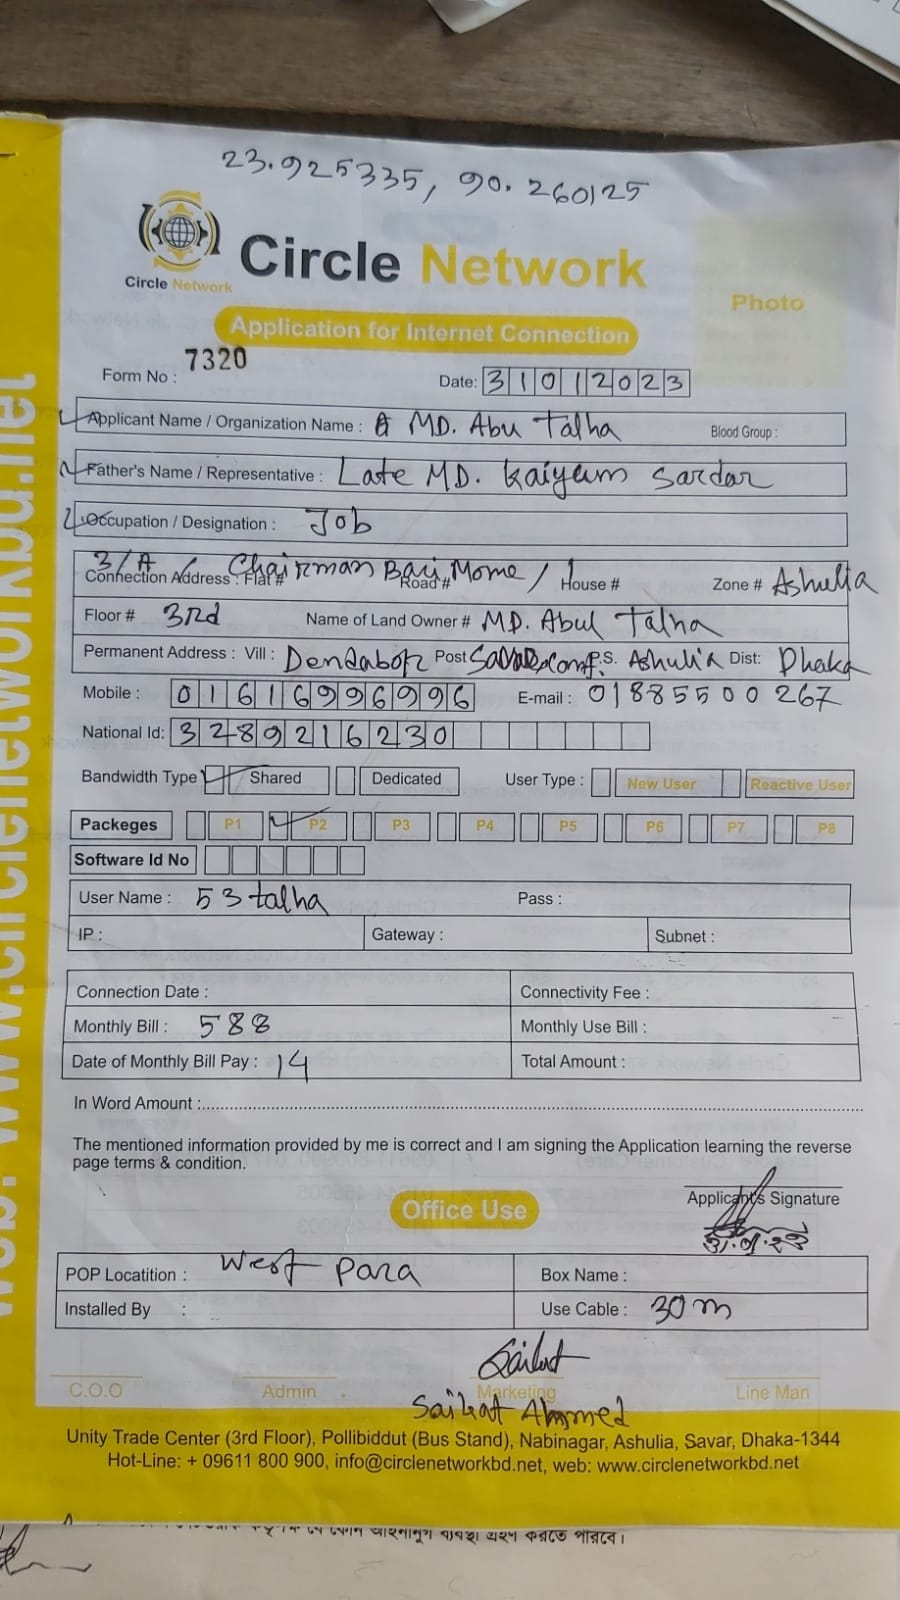 23.925335, 90.260125
Circle Network
Circle Network
Photo
Application for Internet Connection
Form No : 7320
Date: 31012023
Applicant Name / Organization Name : MD. Abu Talha Blood Group :
Father's Name / Representative : Late MD. Kaiyam Sardar
Occupation / Designation : Job
3/A Chairman Bari Mome /
Connection Address : Flat # Road # House # Zone # Ashulia
Floor # 3rd Name of Land Owner # MD. Abul Talha
Permanent Address : Vill : Dendabor Post P.S. Ashulia Dist: Dhaka
Mobile : 01616996996 E-mail : 01885500267
National Id: 3289216230
Bandwidth Type Shared Dedicated User Type : New User Reactive User
Packeges P1 P2 P3 P4 P5 P6 P7 P8
Software Id No
User Name : 53talha Pass :
IP : Gateway : Subnet :
Connection Date : Connectivity Fee :
Monthly Bill : 588 Monthly Use Bill :
Date of Monthly Bill Pay : 14 Total Amount :
In Word Amount :
The mentioned information provided by me is correct and I am signing the Application learning the reverse
page terms & condition.
Applicant's Signature
Office Use
POP Locatition : West Para Box Name :
Installed By : Use Cable : 30m
Saikat
C.O.O Admin Marketing Line Man
Saikat Ahmmed
Unity Trade Center (3rd Floor), Pollibiddut (Bus Stand), Nabinagar, Ashulia, Savar, Dhaka-1344
Hot-Line: + 09611 800 900, info@circlenetworkbd.net, web: www.circlenetworkbd.net
web: www.circlenetworkbd.net
ব্যবস্থা গ্রহণ করতে পারবে।